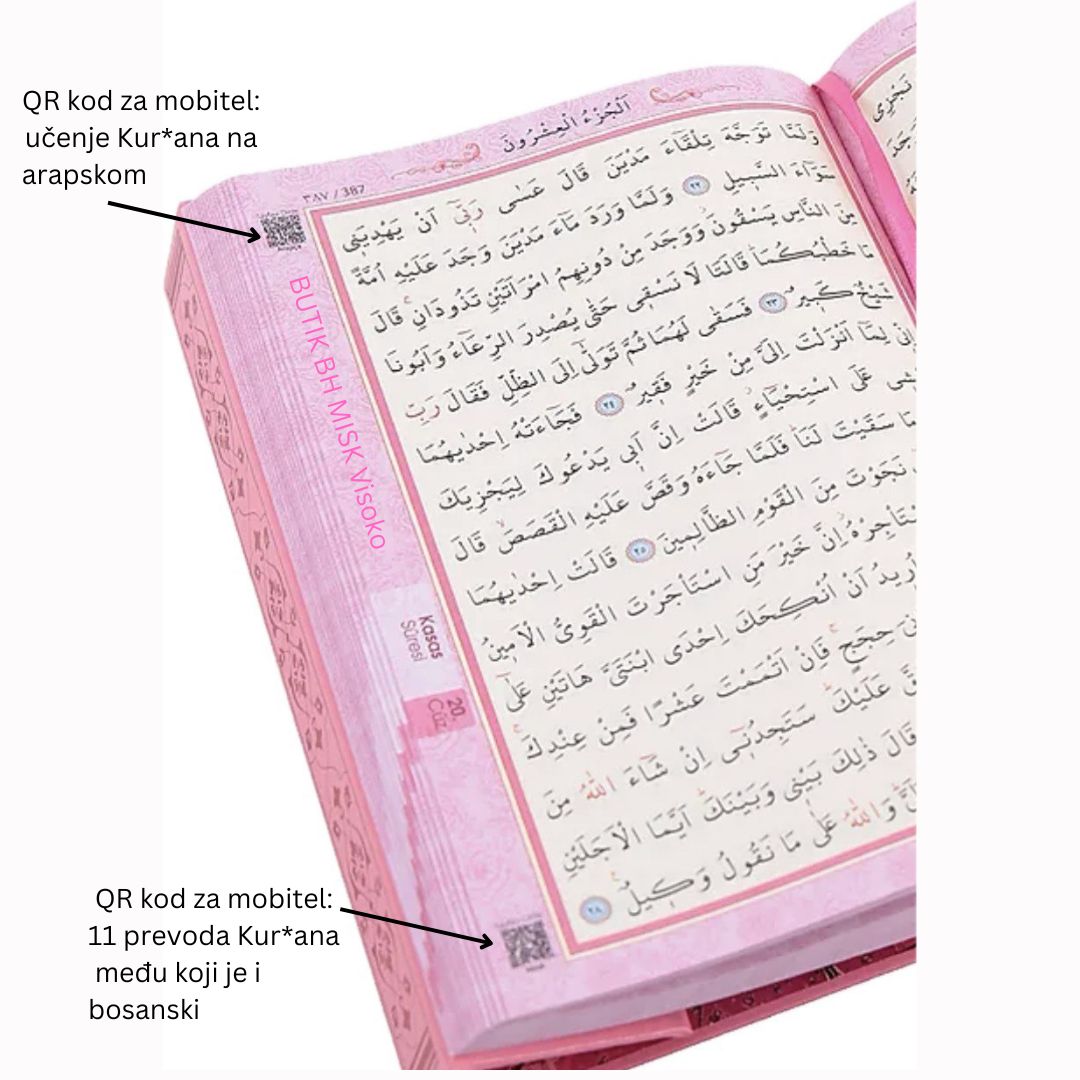 QR kod za mobitel:
učenje Kur*ana na
arapskom
اَلْجُزْءُ الْعِشْرُونَ
٣٨٧ / 387
وَلَمَّا تَوَجَّهَ تِلْقَٓاءَ مَدْيَنَ قَالَ عَسٰى رَبّٖٓى اَنْ يَهْدِيَنٖى
سَوَٓاءَ السَّبٖيلِ ٢٢ وَلَمَّا وَرَدَ مَٓاءَ مَدْيَنَ وَجَدَ عَلَيْهِ اُمَّةً
مِنَ النَّاسِ يَسْقُونَ وَوَجَدَ مِنْ دُونِهِمُ امْرَاَتَيْنِ تَذُودَانِ قَالَ
مَا خَطْبُكُمَا قَالَتَا لَا نَسْقٖى حَتّٰى يُصْدِرَ الرِّعَٓاءُ وَاَبُونَا
شَيْخٌ كَبٖيرٌ ٢٣ فَسَقٰى لَهُمَا ثُمَّ تَوَلّٰٓى اِلَى الظِّلِّ فَقَالَ رَبِّ
اِنّٖى لِمَٓا اَنْزَلْتَ اِلَىَّ مِنْ خَيْرٍ فَقٖيرٌ ٢٤ فَجَٓاءَتْهُ اِحْدٰيهُمَا
عَلَى اسْتِحْيَٓاءٍ قَالَتْ اِنَّ اَبٖى يَدْعُوكَ لِيَجْزِيَكَ
مَا سَقَيْتَ لَنَا فَلَمَّا جَٓاءَهُ وَقَصَّ عَلَيْهِ الْقَصَصَ قَالَ
نَجَوْتَ مِنَ الْقَوْمِ الظَّالِمٖينَ ٢٥ قَالَتْ اِحْدٰيهُمَا
اِنَّ خَيْرَ مَنِ اسْتَاْجَرْتَ الْقَوِىُّ الْاَمٖينُ
اَنْ اُنْكِحَكَ اِحْدَى ابْنَتَىَّ هَاتَيْنِ عَلٰٓى
حِجَجٍ فَاِنْ اَتْمَمْتَ عَشْرًا فَمِنْ عِنْدِكَ
عَلَيْكَ سَتَجِدُنٖٓى اِنْ شَٓاءَ اللّٰهُ مِنَ
قَالَ ذٰلِكَ بَيْنٖى وَبَيْنَكَ اَيَّمَا الْاَجَلَيْنِ
وَاللّٰهُ عَلٰى مَا نَقُولُ وَكٖيلٌ ٢٨
BUTIK BH MISK Visoko
Kasas
Sûresi
20.
Cüz
QR kod za mobitel:
11 prevoda Kur*ana
među koji je i
bosanski